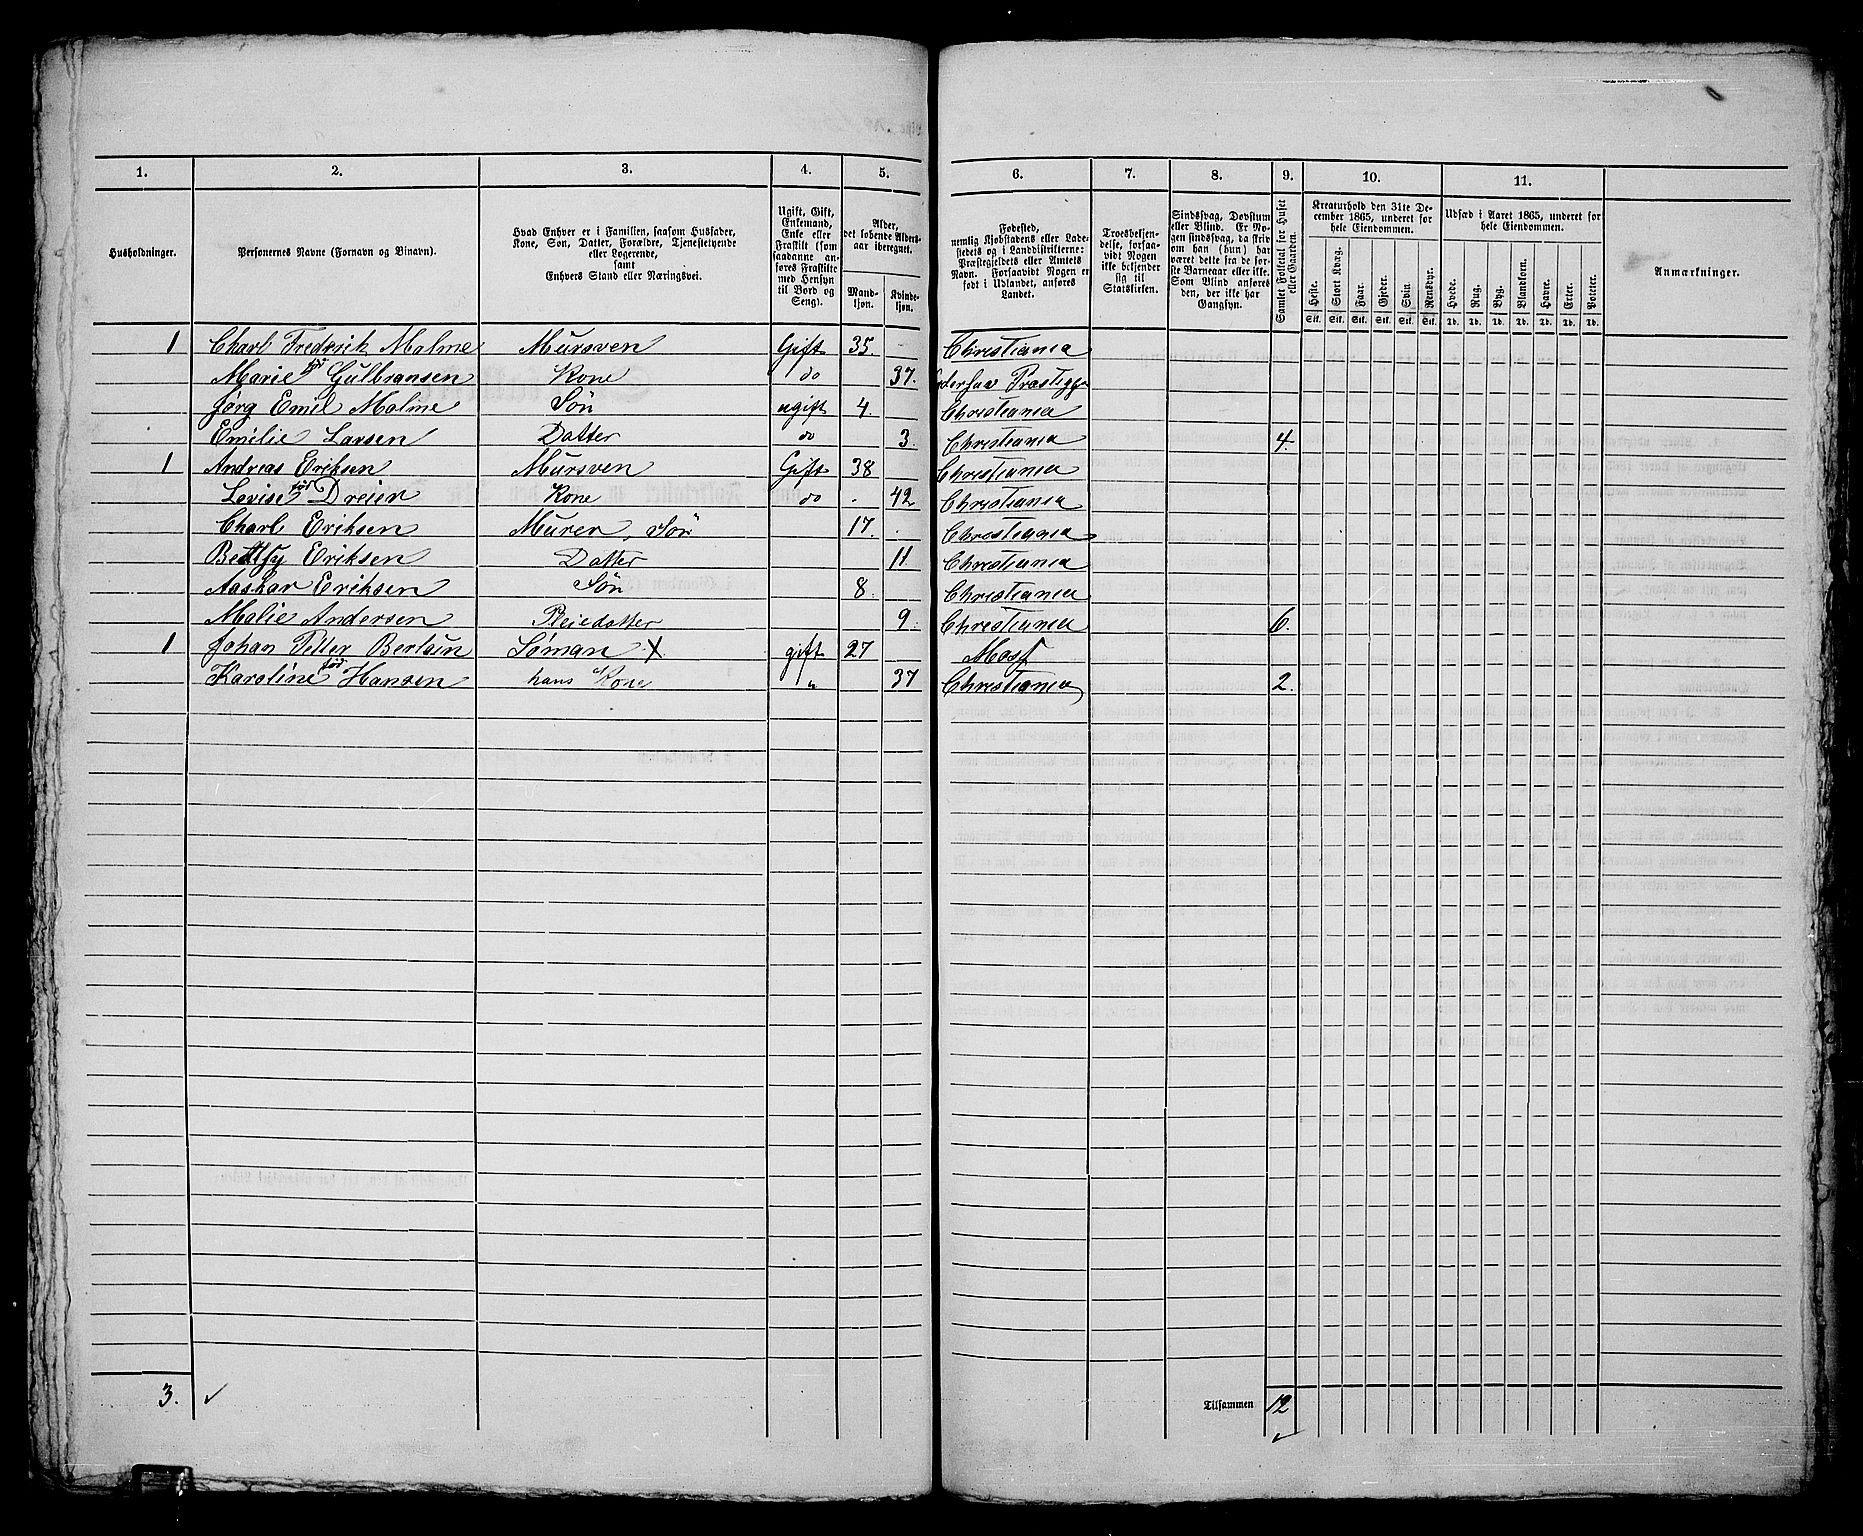 1. 2. 3. 4. 5. 6. 7. 8. 9. 10. 11.
Husholdninger.
Personernes Navne (Fornavn og Binavn).
Hvad Enhver er i Familien, saasom Husfader,
Kone, Søn, Datter, Forældre, Tjenestetyende
eller Logerende,
samt
Enhvers Stand eller Næringsvei.
Ugift, Gift,
Enkemand,
Enke eller
Fraskilt (som
saadanne an-
føres Fraskilte
med Hensyn
til Bord og
Seng).
Alder,
det løbende Alders-
aar iberegnet.
Mand-
kjøn.
Kvinde-
kjøn.
Fødested,
nemlig Kjøbstadens eller Lade-
stedets og i Landdistrikterne:
Præstegjeldets eller Amtets
Navn. Forsaavidt Nogen er
født i Udlandet, anføres
Landet.
Troesbekjen-
delse, forsaa-
vidt Nogen
ikke bekjender
sig til
Statskirken.
Sindssvag, Døvstum
eller Blind. Er No-
gen sindssvag, da skriv
om han (hun) har
været dette fra de før-
ste Barneaar eller ikke.
Som Blind anføres
den, der ikke har
Gangsyn.
Samlet Folketal for Huset
eller Gaarden.
Kreaturhold den 31te De-
cember 1865, underet for
hele Eiendommen.
Heste. Stort Kvæg. Faar. Gjeder. Svin. Rensdyr.
Stk. Stk. Stk. Stk. Stk. Stk.
Udsæd i Aaret 1865, underet for
hele Eiendommen.
Hvede. Rug. Byg. Blandkorn. Havre. Erter. Poteter.
Td. Td. Td. Td. Td. Td. Td.
Anmærkninger.
1 Charl Fredrik Malme Mursven Gift 35. Christiania
Marie fød Gulbransen Kone do 37.
Jørg Emil Malme Søn ugift 4. Christiania
Emilie Larsen Datter do 3. Christiania 4.
1 Andreas Eriksen Mursven Gift 38 Christiania
Levise fød Dreier Kone do - 42 Christiania
Charl Eriksen Murer, Søn 17. Christiania
Betsy Eriksen Datter 11 Christiania
Aaskar Eriksen Søn 8. Christiania
Malie Andersen Pleiedatter 9. Christiania 6.
1 Johan Petter Bertsin Søman X gift 27 Moss
Karoline fød Hansen hans Kone " 37 Christiania 2.
3. ✓ Tilsammen 12 ✓